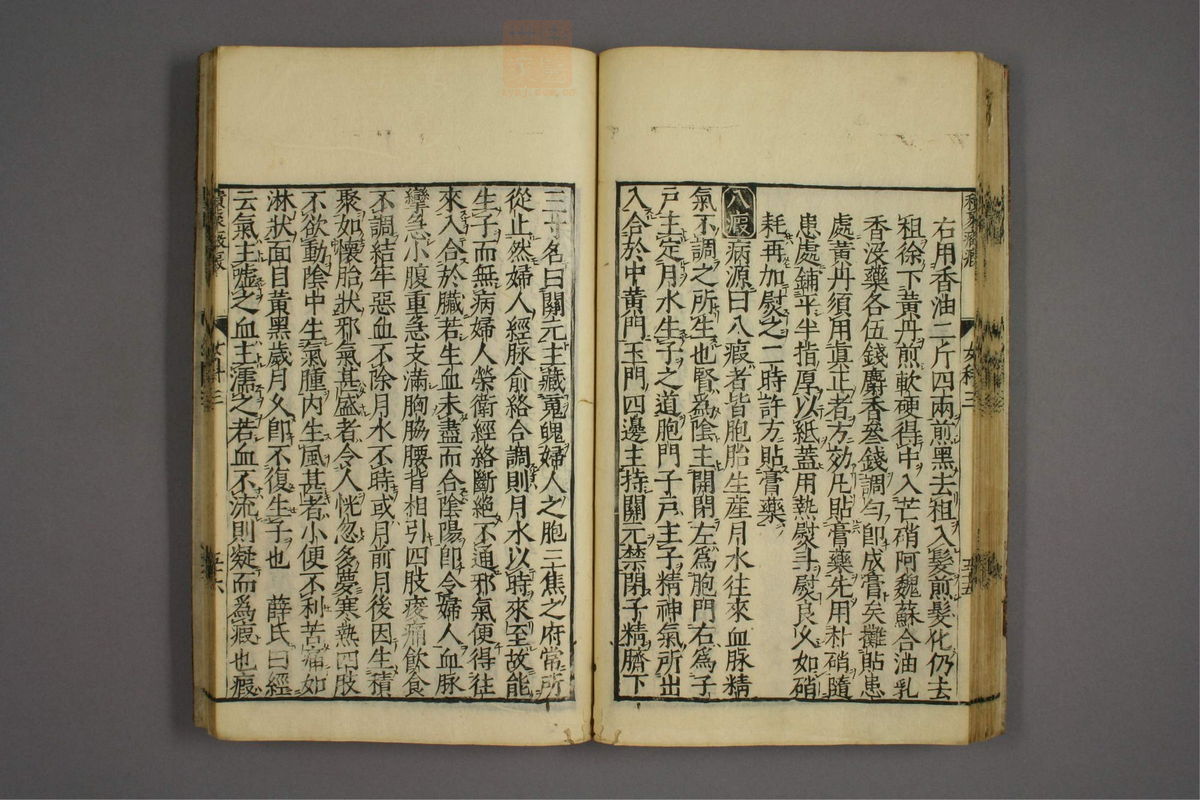 右用香油二斤四兩煎黑去柤入髮煎髮化仍去
柤徐下黃丹煎軟硬得中入芒硝阿魏蘇合油乳
香沒藥各伍錢麝香叄錢調勻卽成膏矣攤貼患
處黃丹須用眞正者方効凡貼膏藥先用朴硝隨
患處鋪平半指厚以紙蓋用熱熨斗熨良乆如硝
耗再加熨之二時許方貼膏藥
八瘕 病源曰八瘕者皆胞胎生産月水往來血脉精
氣不調之所生也腎爲陰主開閉左爲胞門右爲子
戸主定月水生子之道胞門子戸主子精神氣所出
入合於中黃門玉門四邊主持關元禁閉子精臍下
三寸名曰關元主藏䰟魄婦人之胞三焦之府常所
從止然婦人經脉俞絡合調則月水以時來至故能
生子而無病婦人榮衛經絡斷絶不通邪氣便得往
來入合於臟若生血未盡而合陰陽卽令婦人血脉
攣急小腹重急支滿胸脇腰背相引四肢痠痛飮食
不調結牢惡血不除月水不時或月前月後因生積
聚如懷胎狀邪氣甚盛者令人恍忽多夢寒熱四肢
不欲動陰中生氣腫內生風甚者小便不利苦痛如
淋狀面目黃黑歲月乆卽不復生子也 薛氏曰經
云氣主噓之血主濡之若血不流則凝而爲瘕也瘕
女科三
五十五
女科三
五十六